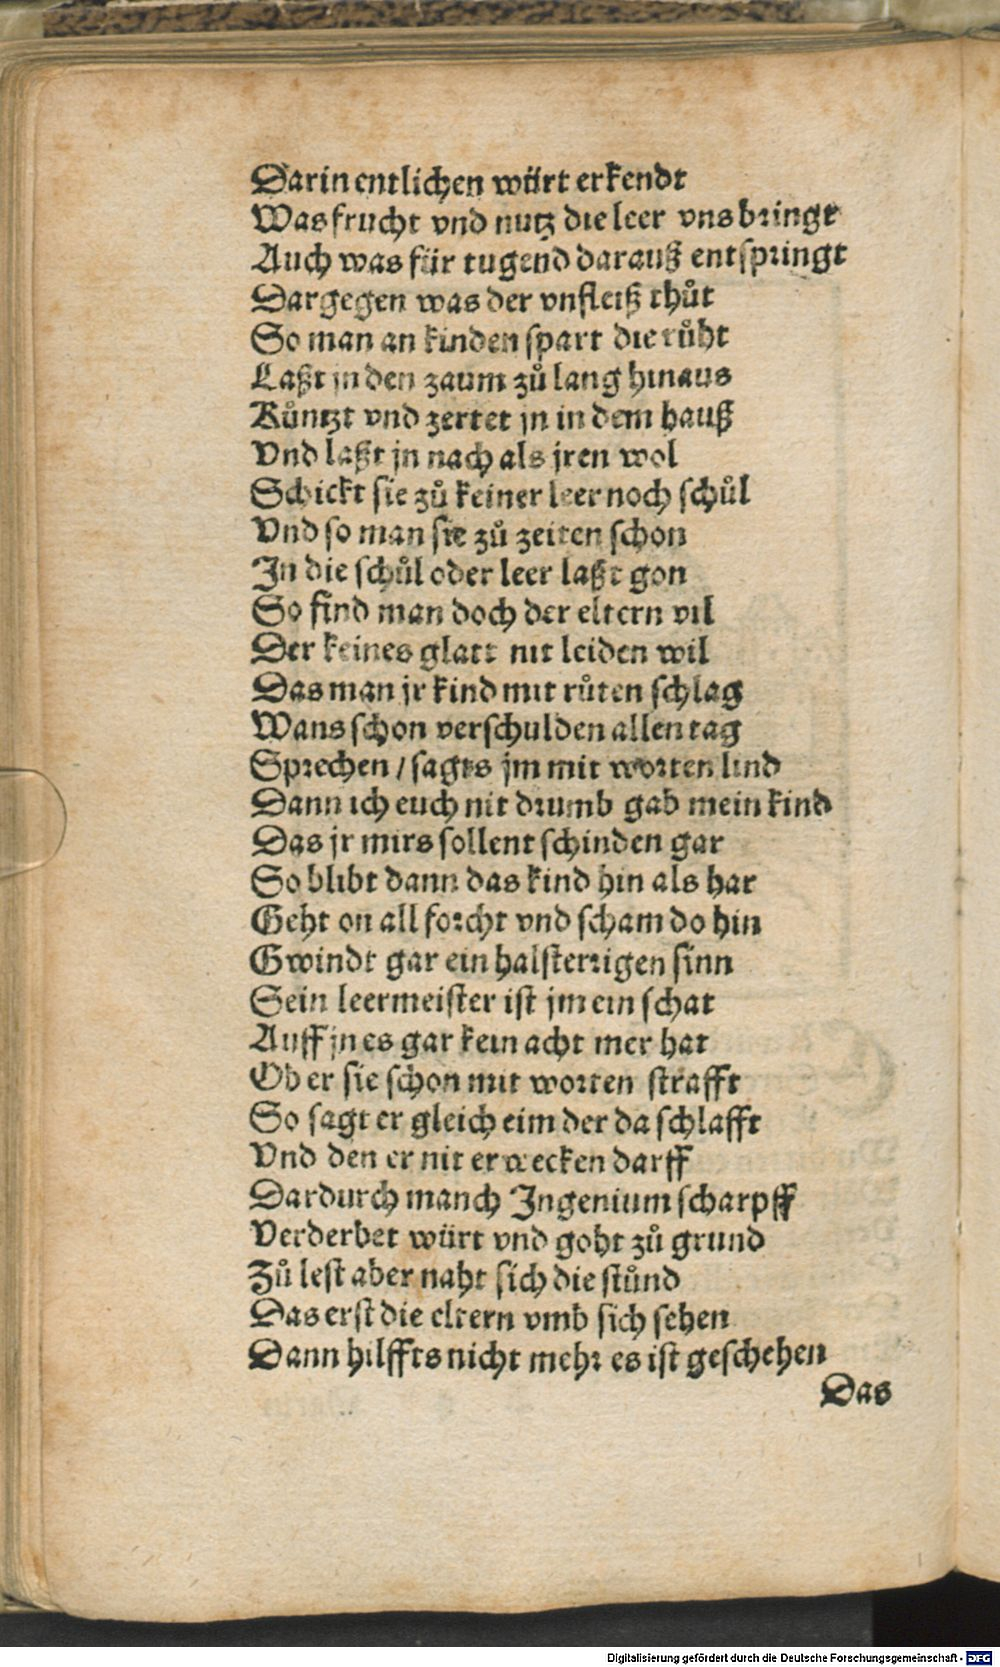 Darin entlichen würt erkendt
Was frucht vnd nutz die leer vns bringt
Auch was für tugend darauß entspringt
Dargegen was der vnfleiß thůt
So man an kinden spart die růht
Laßt jn den zaum zů lang hinaus
Kůntzt vnd zertet jn in dem hauß
Vnd laßt jn nach als jren wol
Schickt sie zů keiner leer noch schůl
Vnd so man sie zů zeiten schon
In die schůl oder leer laßt gon
So find man doch der eltern vil
Der keines glatt nit leiden wil
Das man jr kind mit růten schlag
Wans schon verschulden allen tag
Sprechen / sagts jm mit worten lind
Dann ich euch nit drumb gab mein kind
Das jr mirs sollent schinden gar
So blibt dann das kind hin als har
Geht on all forcht vnd scham do hin
Gwindt gar ein halsterrigen sinn
Sein leermeister ist jm ein schat
Auff jn es gar kein acht mer hat
Ob er sie schon mit worten strafft
So sagt er gleich eim der da schlafft
Vnd den er nit erwecken darff
Dardurch manch Ingenium scharpff
Verderbet würt vnd goht zů grund
Zů lest aber naht sich die stůnd
Das erst die eltern vmb sich sehen
Dann hilffts nicht mehr es ist geschehen
Das
Digitalisierung gefördert durch die Deutsche Forschungsgemeinschaft - DFG